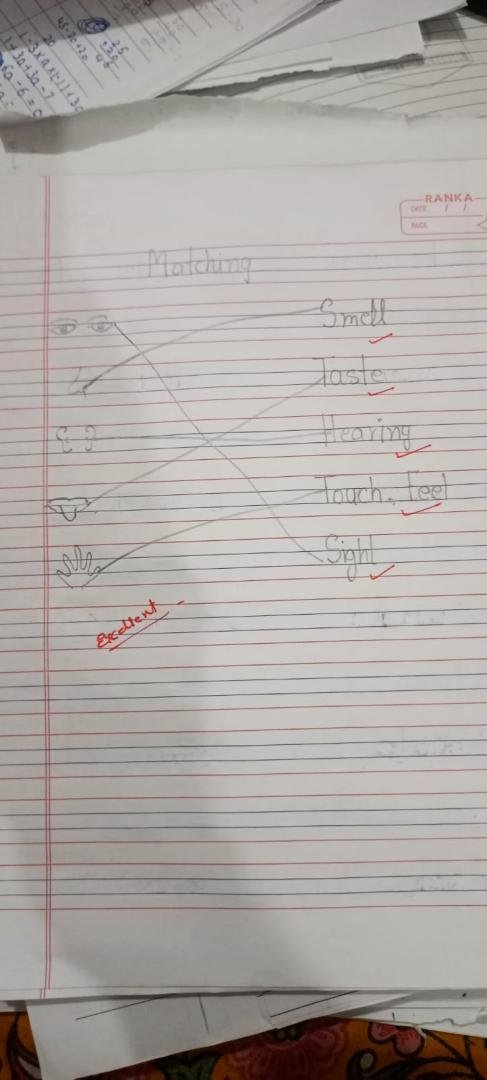 RANKA
DATE / /
PAGE
Matching
Smell
Taste
Hearing
Touch, feel
Sight
Excellent